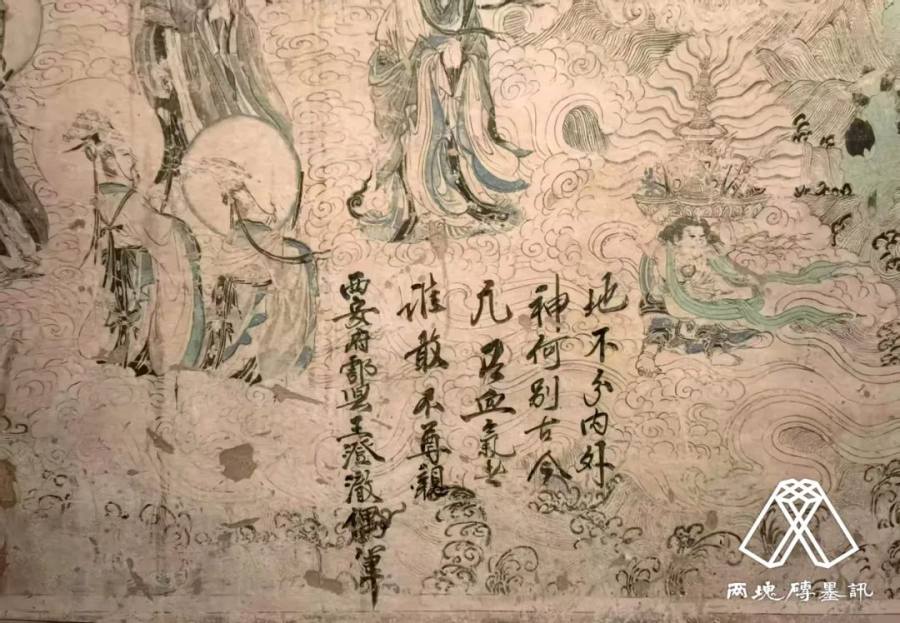 地不分内外
神何别古今
凡有血氣者
誰敢不尊親
西安府鄠县王登澈偶筆
两塊磚墨訊